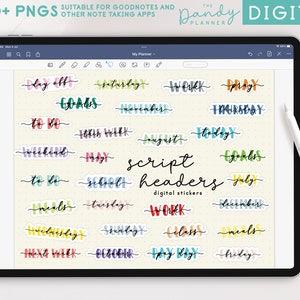 0+ PNGS
SUITABLE FOR GOODNOTES AND
OTHER NOTE TAKING APPS
THE
Dandy
PLANNER
DIGIT
My Planner
day off
saturday
WORK
PAY
GOALS
november
THURSDAY
TO DO
THIS WEEK
today
august
weekend
MAY
GOALS
script
headers
digital stickers
to do
school
july
meals
tuesday
WORK
december
WEDNESDAY
sunday
CLASS
meals
NEXT WEEK
OCTOBER
PAY DAY
friday